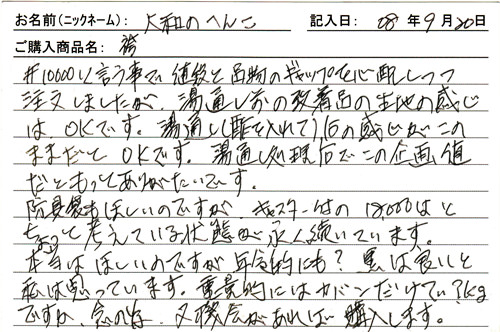 お名前(ニックネーム): 大和のへんこ 記入日: 08年9月20日
ご購入商品名: 袴
¥10000と言う事で、値段と品物のギャップを心配しつつ
注文しましたが、湯通し前の到着品の生地の感じ
は、OKです。湯通し(酢を入れて)后の感じがこの
ままだと OKです。湯通し処理后でこの企画値
だともってありがたいです。
防具袋もほしいのですが、キャスター付の 18000はと
ちょっと考えている状態が永く続いています。
本当はほしいのですが年令的にも? 黒は良いと
私は思っています。重量的にはカバンだけで、?kg
ですか、念の為、又機会があれば購入します。